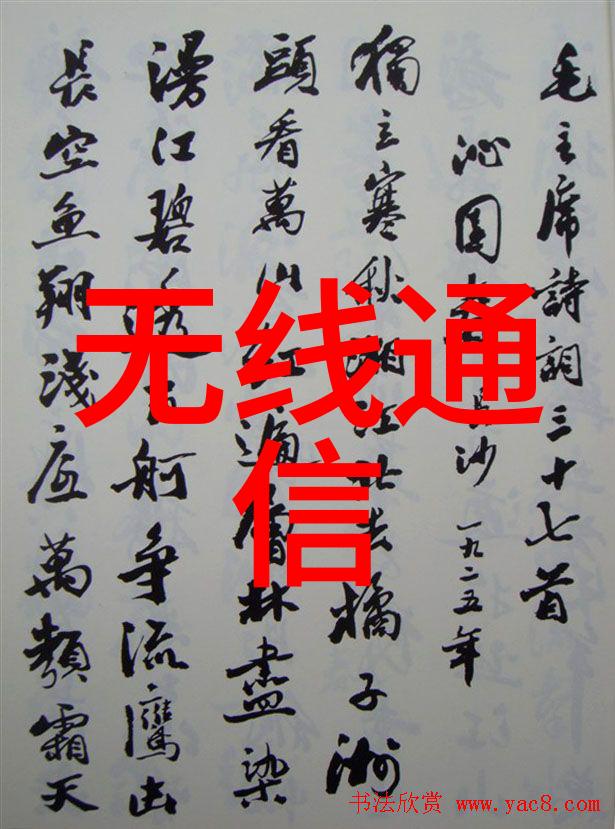 毛主席詩詞三十七首
沁園春 長沙 一九二五年
獨立寒秋湘江北去橘子洲
頭看萬山紅遍層林盡染
漫江碧透百舸爭流鷹击
長空魚翔淺底萬類霜天
无线通
信
书法欣赏 www.yac8.com